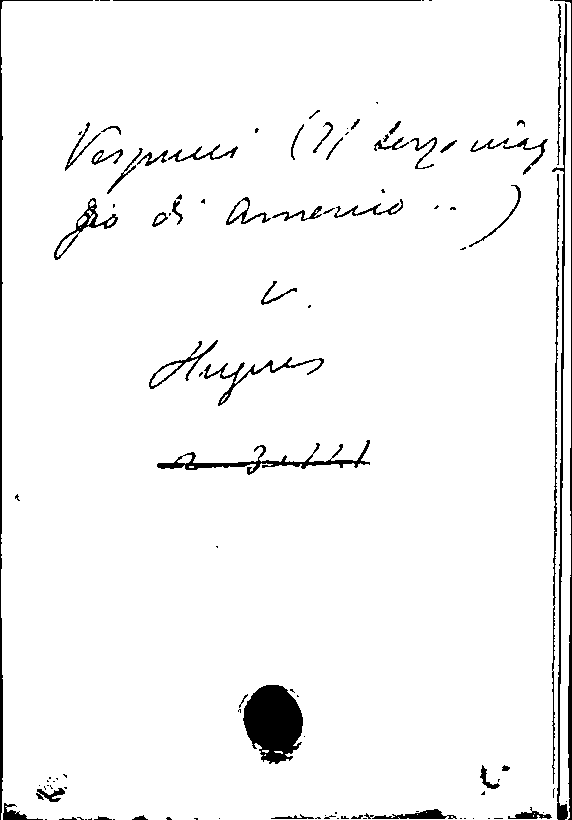 Vespucci (Il terzo viag
gio di Amerio ..)
v.
Hugues